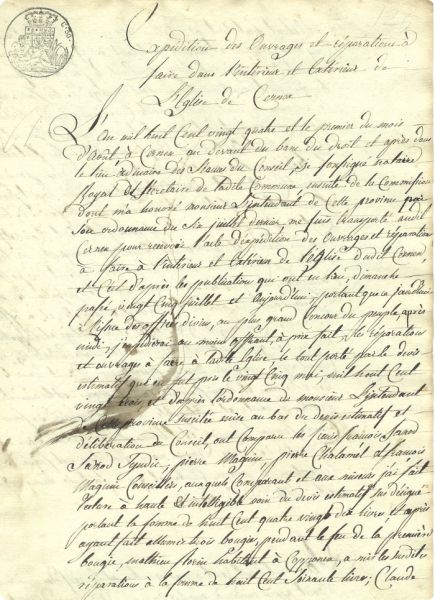 Expédition des Ouvrages et réparations à
faire dans l'intérieur et Extérieur de
L'Eglise de Cernex
L'an mil huit Cent vingt quatre et le premier du mois
d'Août à Cernex au devant du banc du droit et après dans
le lieu ordinaire des Séances du Conseil, je soussigné notaire
Royal et Secrétaire de ladite Commune ensuite de la Commission
dont m'a honoré monsieur L'intendant de Cette province par
Son ordonnance du Six juillet dernier me suis transporté audit
Cernex pour recevoir l'acte d'expédition des Ouvrages et réparations
à faire à l'intérieur et Extérieur de l'Eglise dudit Cernex
et C'est d'après les publications qui ont eu lieu, dimanche
passé, vingt Cinq juillet et aujourd'hui, portant que ce jourd'hui
à l'issue des offices divins, au plus grand Concours du peuple après
midi, je délivrerai au moins offrant, à prix fait, les réparations
et ouvrages à faire à ladite Eglise, le tout porté par le devis
estimatif qui en fut pris le vingt Cinq mai, mil huit cent
vingt trois et d'après l'ordonnance de monsieur L'intendant
de Cette province Susdite mise au bas du devis estimatif et
délibération du Conseil, ont Comparu les Sieurs françois
Syndic, pierre Magnin, pierre Chalamel et françois
Magnin Conseillers, auxquels Comparant et aux mineurs j'ai fait
lecture à haute et intelligible voix du devis estimatif Sus désigné
portant la Somme de huit Cent quatre vingt dix livres et après
ayant fait allumer trois bougies, pendant le feu de la première
bougie, mathieu habitant à Copponex, a mis les susdites
réparations à la Somme de huit Cent Soixante livres, Claude